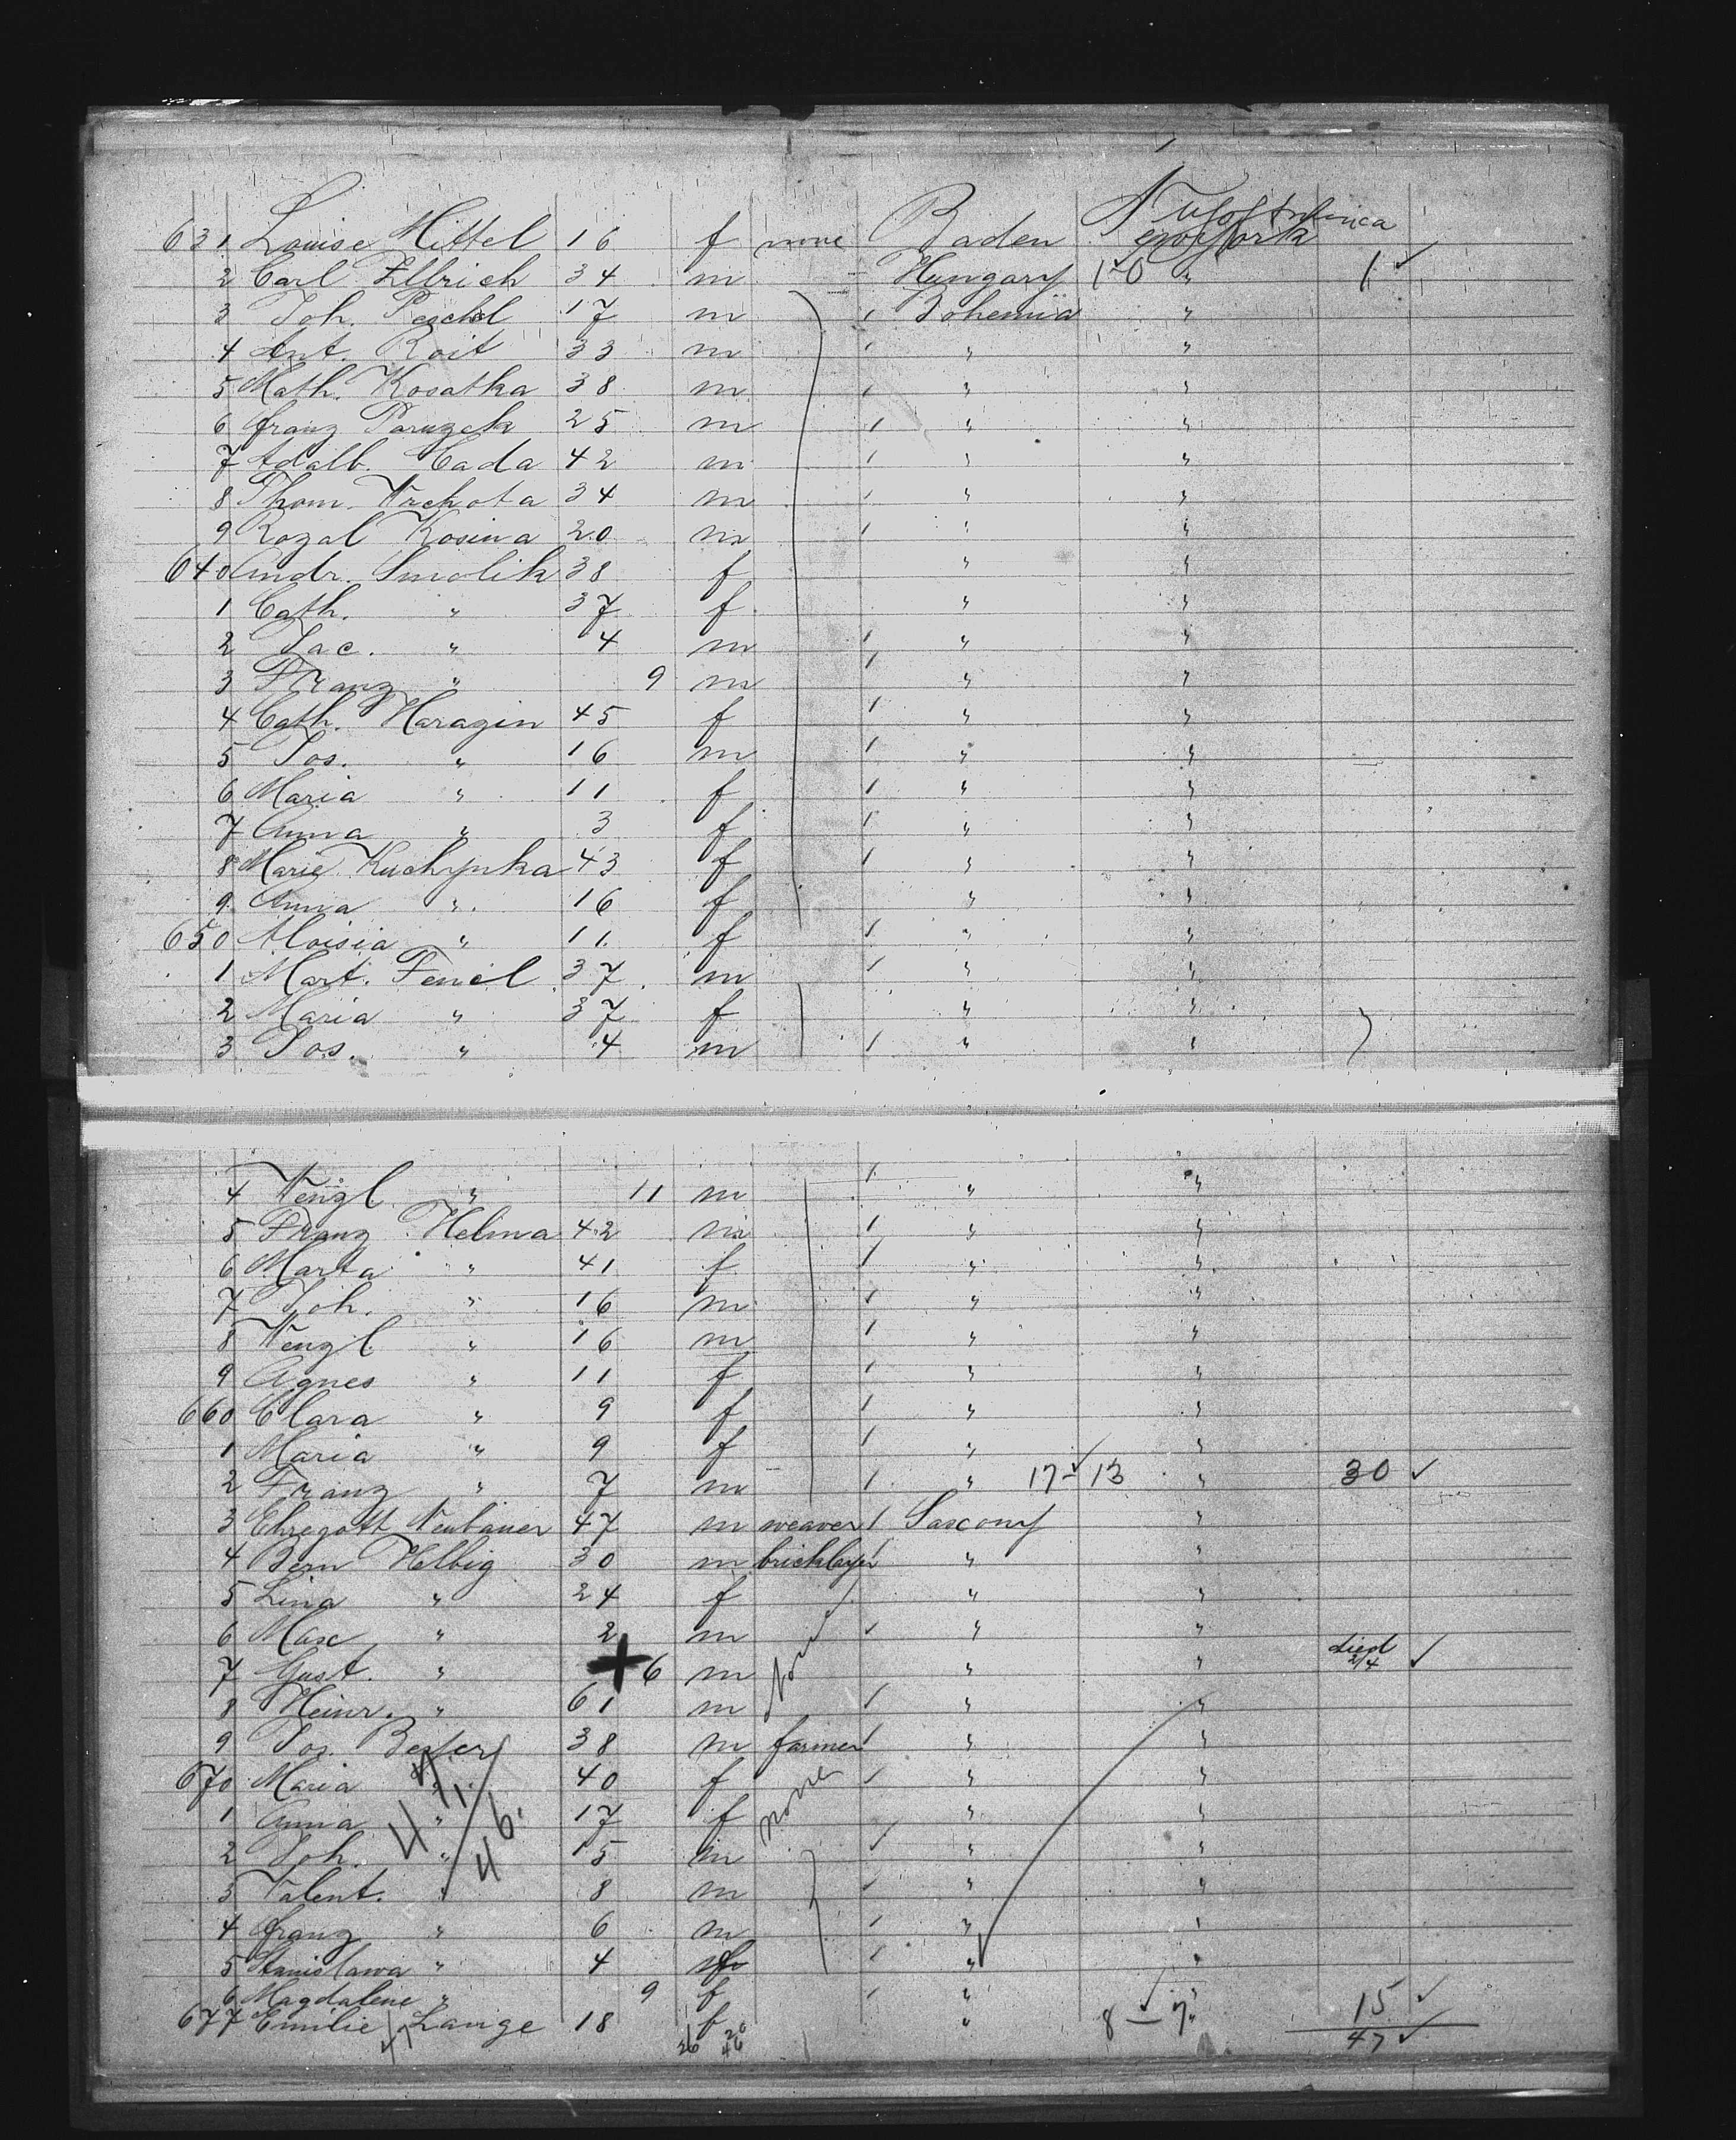 631 Louise Hittel 16 f none Baden U S of America
2 Carl Ullrich 34 m Hungary 1-0 " 1 ✓
3 Joh. Peschl 17 m Bohemia "
4 Ant. Roit 33 m " "
5 Math. Kosatka 38 m " "
6 Franz Paruzek 25 m " "
7 Adalb. Cada 42 m " "
8 Thom. Vrchota 34 m " "
9 Rozal Kosina 20 m " "
640 Andr. Smolik 38 f " "
1 Cath. " 37 f " "
2 Jac. " 4 m " "
3 Franz " 9 m " "
4 Cath. Harazin 45 f " "
5 Jos. " 16 m " "
6 Maria " 11 f " "
7 Anna " 3 f " "
8 Marie Kuchynka 43 f " "
9 Anna " 16 f " "
650 Aloisia " 11 f " "
1 Mart. Fencl 37 m " "
2 Maria " 37 f " "
3 Jos. " 4 m " "
4 Wenzl " 11 m " "
5 Franz Helma 42 m " "
6 Marta " 41 f " "
7 Joh. " 16 m " "
8 Wenzl " 16 m " "
9 Agnes " 11 f " "
660 Clara " 9 f " "
1 Maria " 9 f " "
2 Franz " 7 m " 17-13 " 30 ✓
3 Ehregott Neubauer 47 m weaver Saxony "
4 Bern Helbig 30 m bricklayer " "
5 Lina " 24 f " "
6 Max " 2 m none " "
7 Gust. " + 6 m " " died 2/4 ✓
8 Heinr. " 61 m " "
9 Jos. 38 m farmer " "
670 Maria " 40 f none " "
1 Anna " 17 f " "
2 Joh. " 15 m " "
3 Valent. " 8 m " "
4 Franz " 6 m " "
5 Stanislawa " 4 f " "
6 Magdalene " 9 f " " 15 ✓
677 Emilie Lange 18 f " 8-7 " 47 ✓